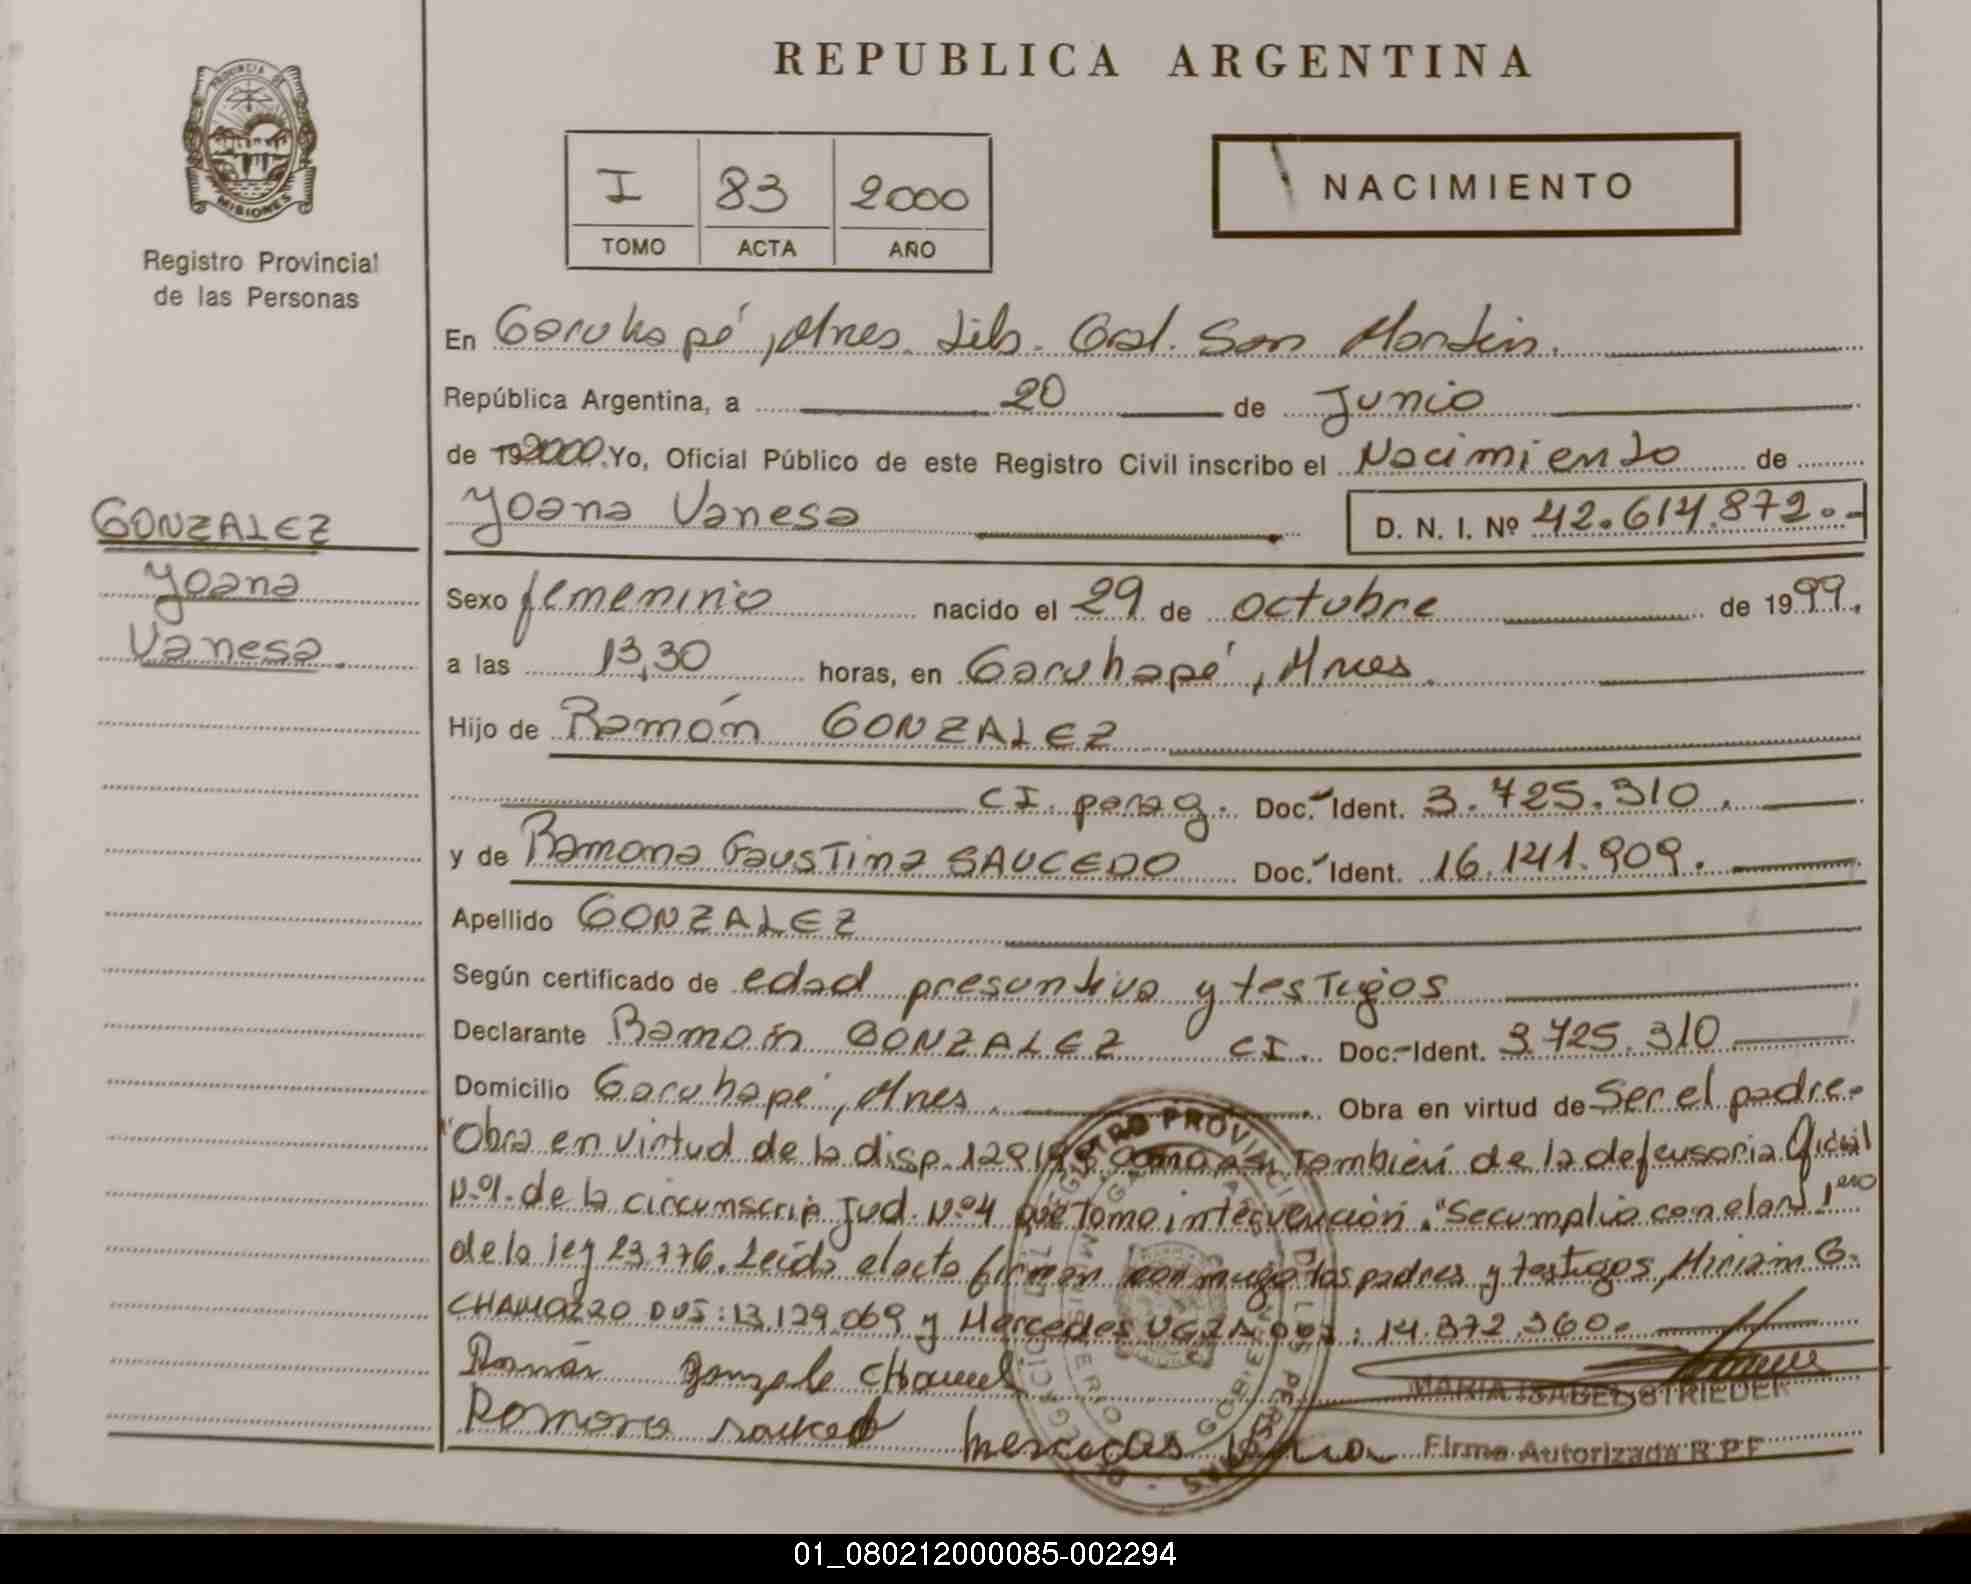 REPUBLICA ARGENTINA
PROVINCIA DE
MISIONES
Registro Provincial
de las Personas
I 83 2000
TOMO ACTA AÑO
NACIMIENTO
En Garuhapé, Mnes. Lib. Gral. San Martin.
República Argentina, a 20 de Junio
de 192000. Yo, Oficial Público de este Registro Civil inscribo el Nacimiento de
Yoana Vanesa D. N. I. Nº 42.614.872.-
GONZALEZ
Yoana
Vanesa.
Sexo femenino nacido el 29 de octubre de 1999.
a las 13,30 horas, en Garuhapé, Mnes.
Hijo de Ramón GONZALEZ
CI. parag. Doc. Ident. 3.725.310.
y de Ramona Faustina SAUCEDO Doc. Ident. 16.141.909.
Apellido GONZALEZ
Según certificado de edad presuntiva y testigos
Declarante Ramón GONZALEZ CI. Doc. Ident. 3.725.310
Domicilio Garuhapé, Mnes. Obra en virtud de Ser el padre.
"Obra en virtud de la disp. como asi también de la defensoria Oficial
Nº1. de la circunscrip. Jud. Nº4 que tomo intervención. "Se cumplio con el art 1ero
de la ley 23.776. Leida el acta firman conmigo los padres y testigos, Miriam G.
CHAMORRO DNI: 13.129.069 y Mercedes DNI: 14.872.360.
Ramón Gonzale
Ramona Mercedes
MARIA ISABEL STRIEDER
Firma Autorizada R.P.F
01_080212000085-002294